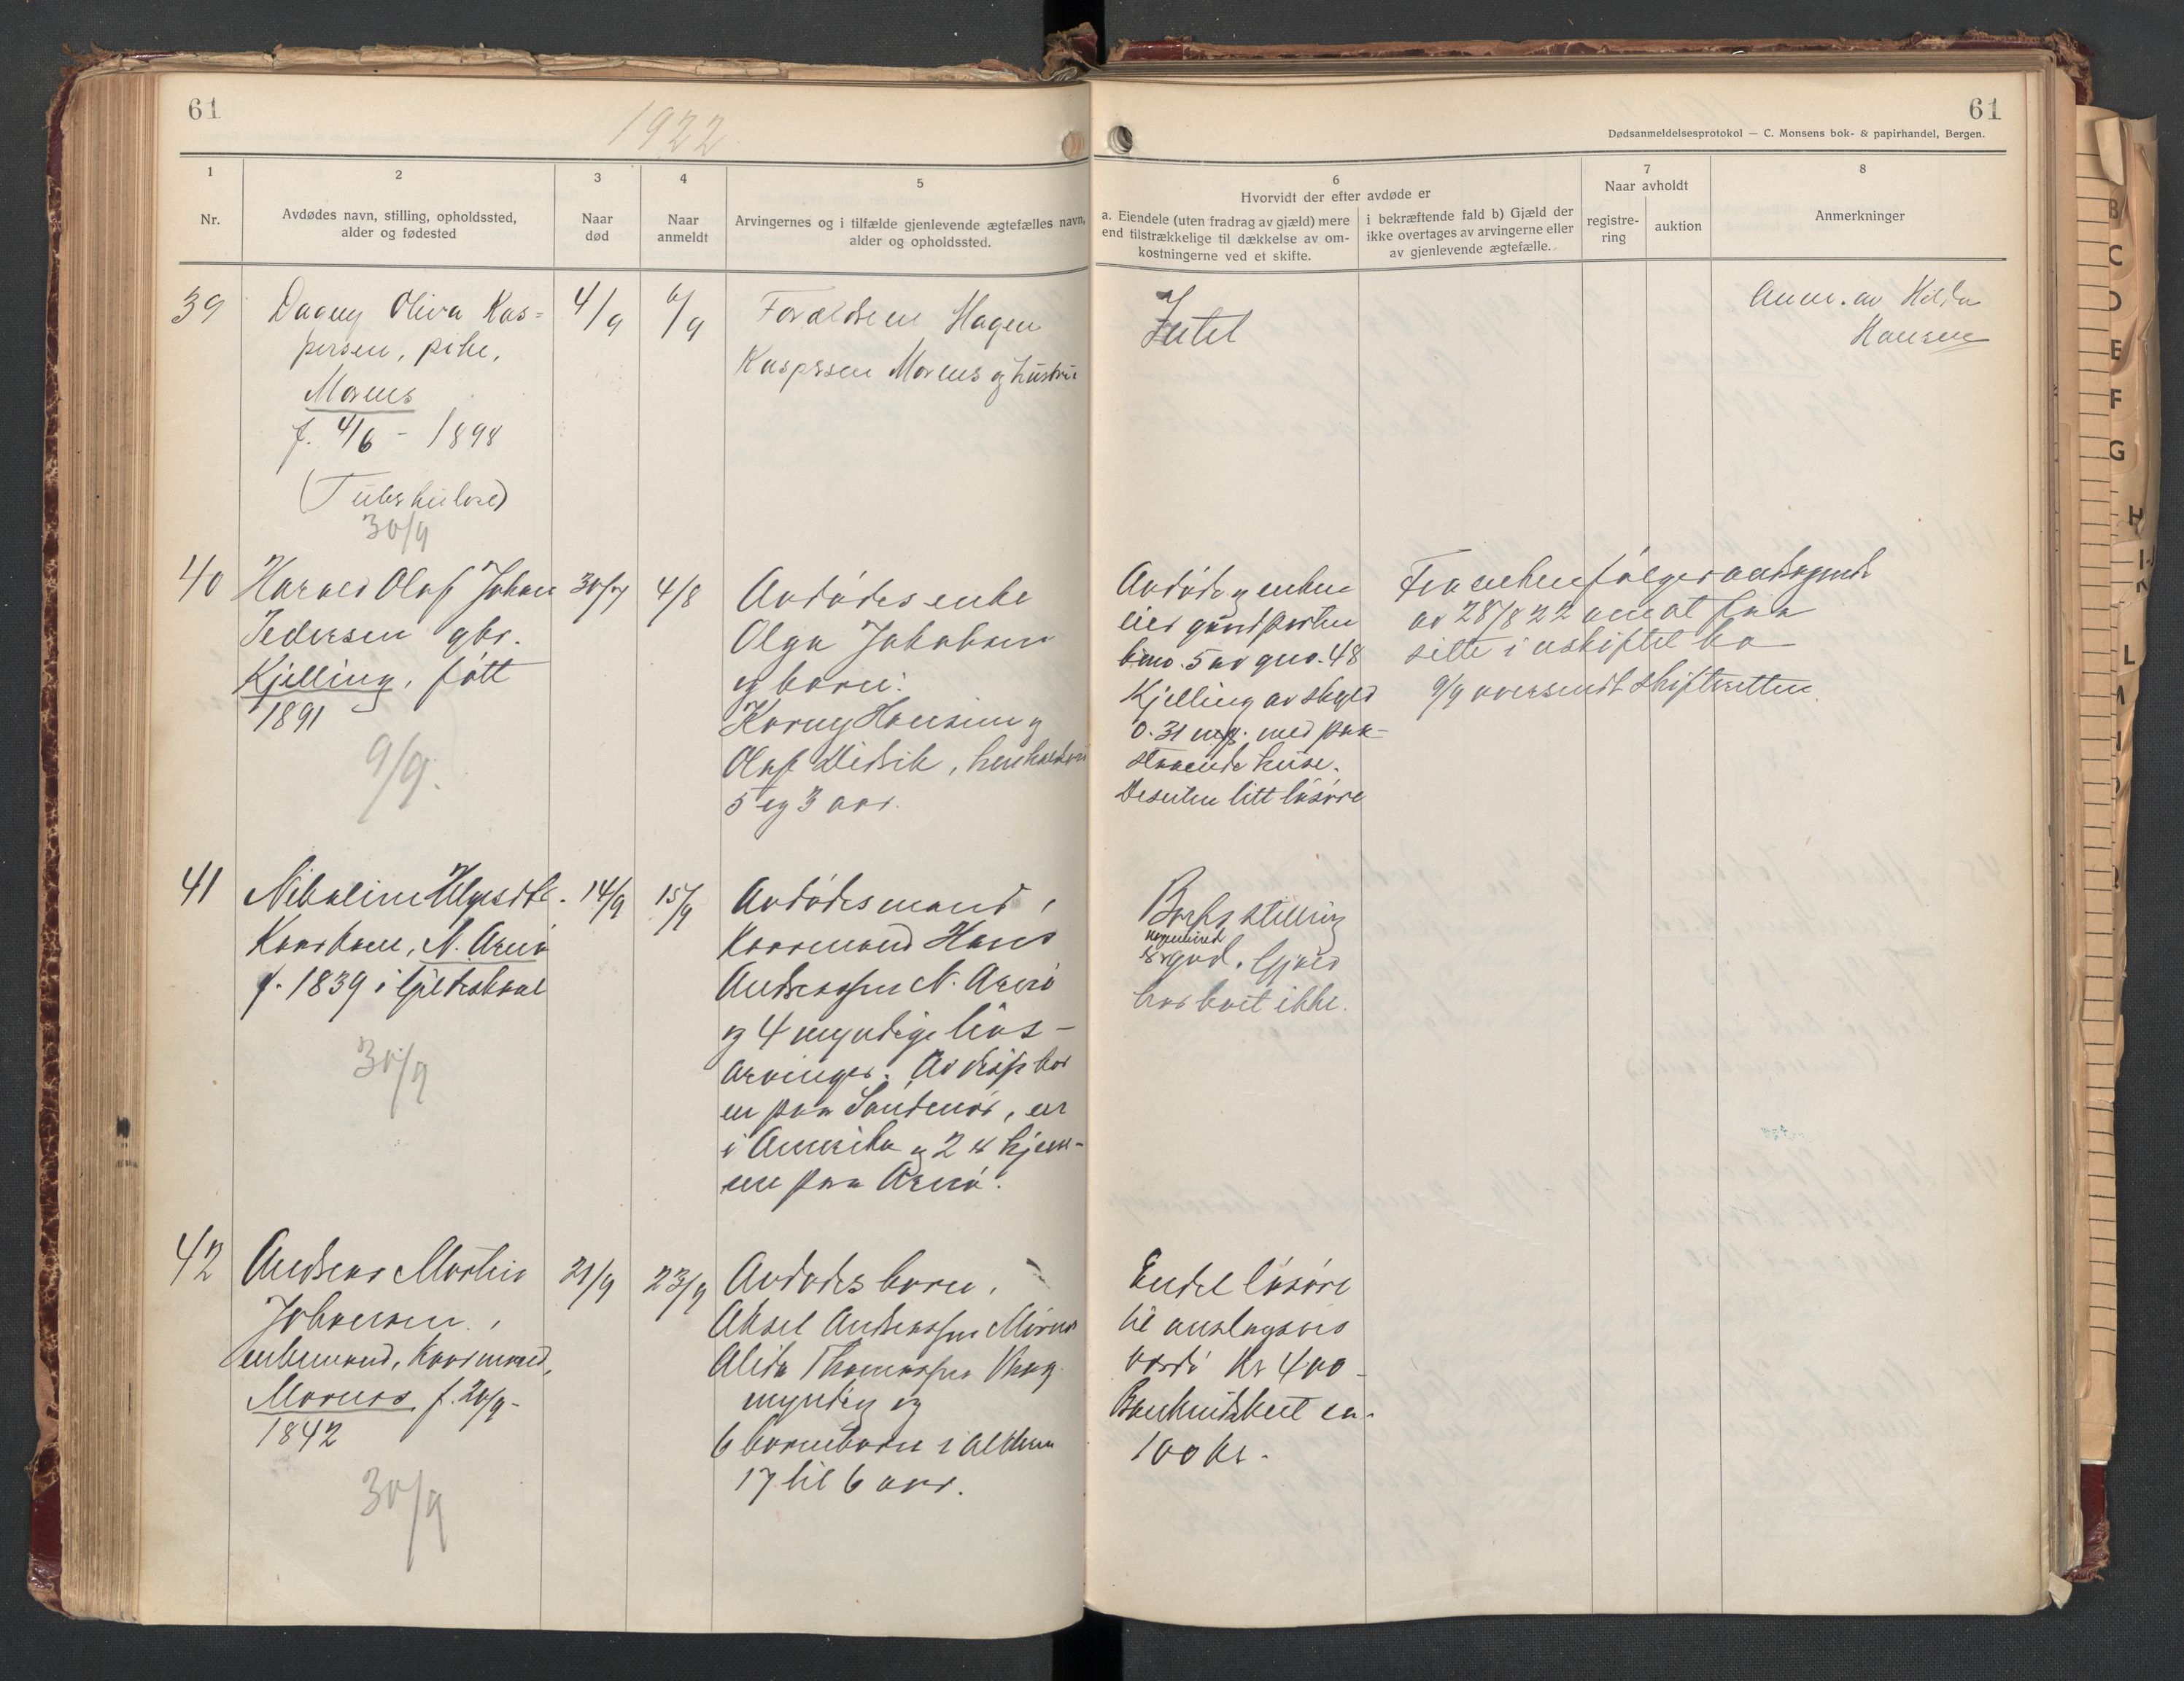 61
1922
61
Dødsanmeldelsesprotokol — C. Monsens bok- & papirhandel, Bergen.
1
2
3
4
5
6
7
8
Nr.
Avdødes navn, stilling, opholdssted,
alder og fødested
Naar
død
Naar
anmeldt
Arvingernes og i tilfælde gjenlevende ægtefælles navn,
alder og opholdssted.
Hvorvidt der efter avdøde er
a. Eiendele (uten fradrag av gjæld) mere
end tilstrækkelige til dækkelse av om-
kostningerne ved et skifte.
i bekræftende fald b) Gjæld der
ikke overtages av arvingerne eller
av gjenlevende ægtefælle.
Naar avholdt
registre-
ring
auktion
Anmerkninger
39
Dagny Oliva Kas-
persen, pike,
Mornes
f. 4/6 - 1898
(Tuberkulose)
30/9
4/9
6/9
Forældrene Hagen
Kaspersen Mornes og hustru
Intet
Anm. av Hilda
Hansen
40
Harald Olaf Johan
Pedersen gbr.
Kjelling, født
1891
9/9.
30/7
4/8
Avdødes enke
Olga Jakobsen
og børn:
Karny Hansine og
Olaf Didrik, henholdsvis
5 og 3 aar.
Avdøde og enken
eier gaardparten
bno. 5 av gno. 48
Kjelling av skyld
0.31 mrk. med paa-
staaende huse.
Desuten litt løsøre
Fra enken følger andragende
av 28/8 22 om at faa
sitte i uskiftet bo
9/9 oversendt skifteretten.
41
Nikoline Helgesdtr.
Kaarkone, N. Arnø
f. 1839 i Gildeskaal
30/9
14/9
15/9
Avdødes mand,
Kaarmand Hans
Andreassen N. Arnø
og 4 myndige livs-
arvinger. Av disse bor
en paa Sandnør, en
i Amerika og 2 er hjem-
me paa Arnø.
Boets stilling
er god. Gjæld
har boet ikke.
42
Anders Martin
Johansen,
enkemand, Kaarmand,
Mornes f. 20/9-
1842
30/9
21/9
23/9
Avdødes børn,
Aksel Andreassen Mornes
Alida Thomassen
myndig og
6 barnebarn i alderen
17 til 6 aar.
Endel løsøre
til anslagsvis
værdi Kr 400-
Bankindskut ca.
100 kr.
B
C
D
E
F
G
H
I
L